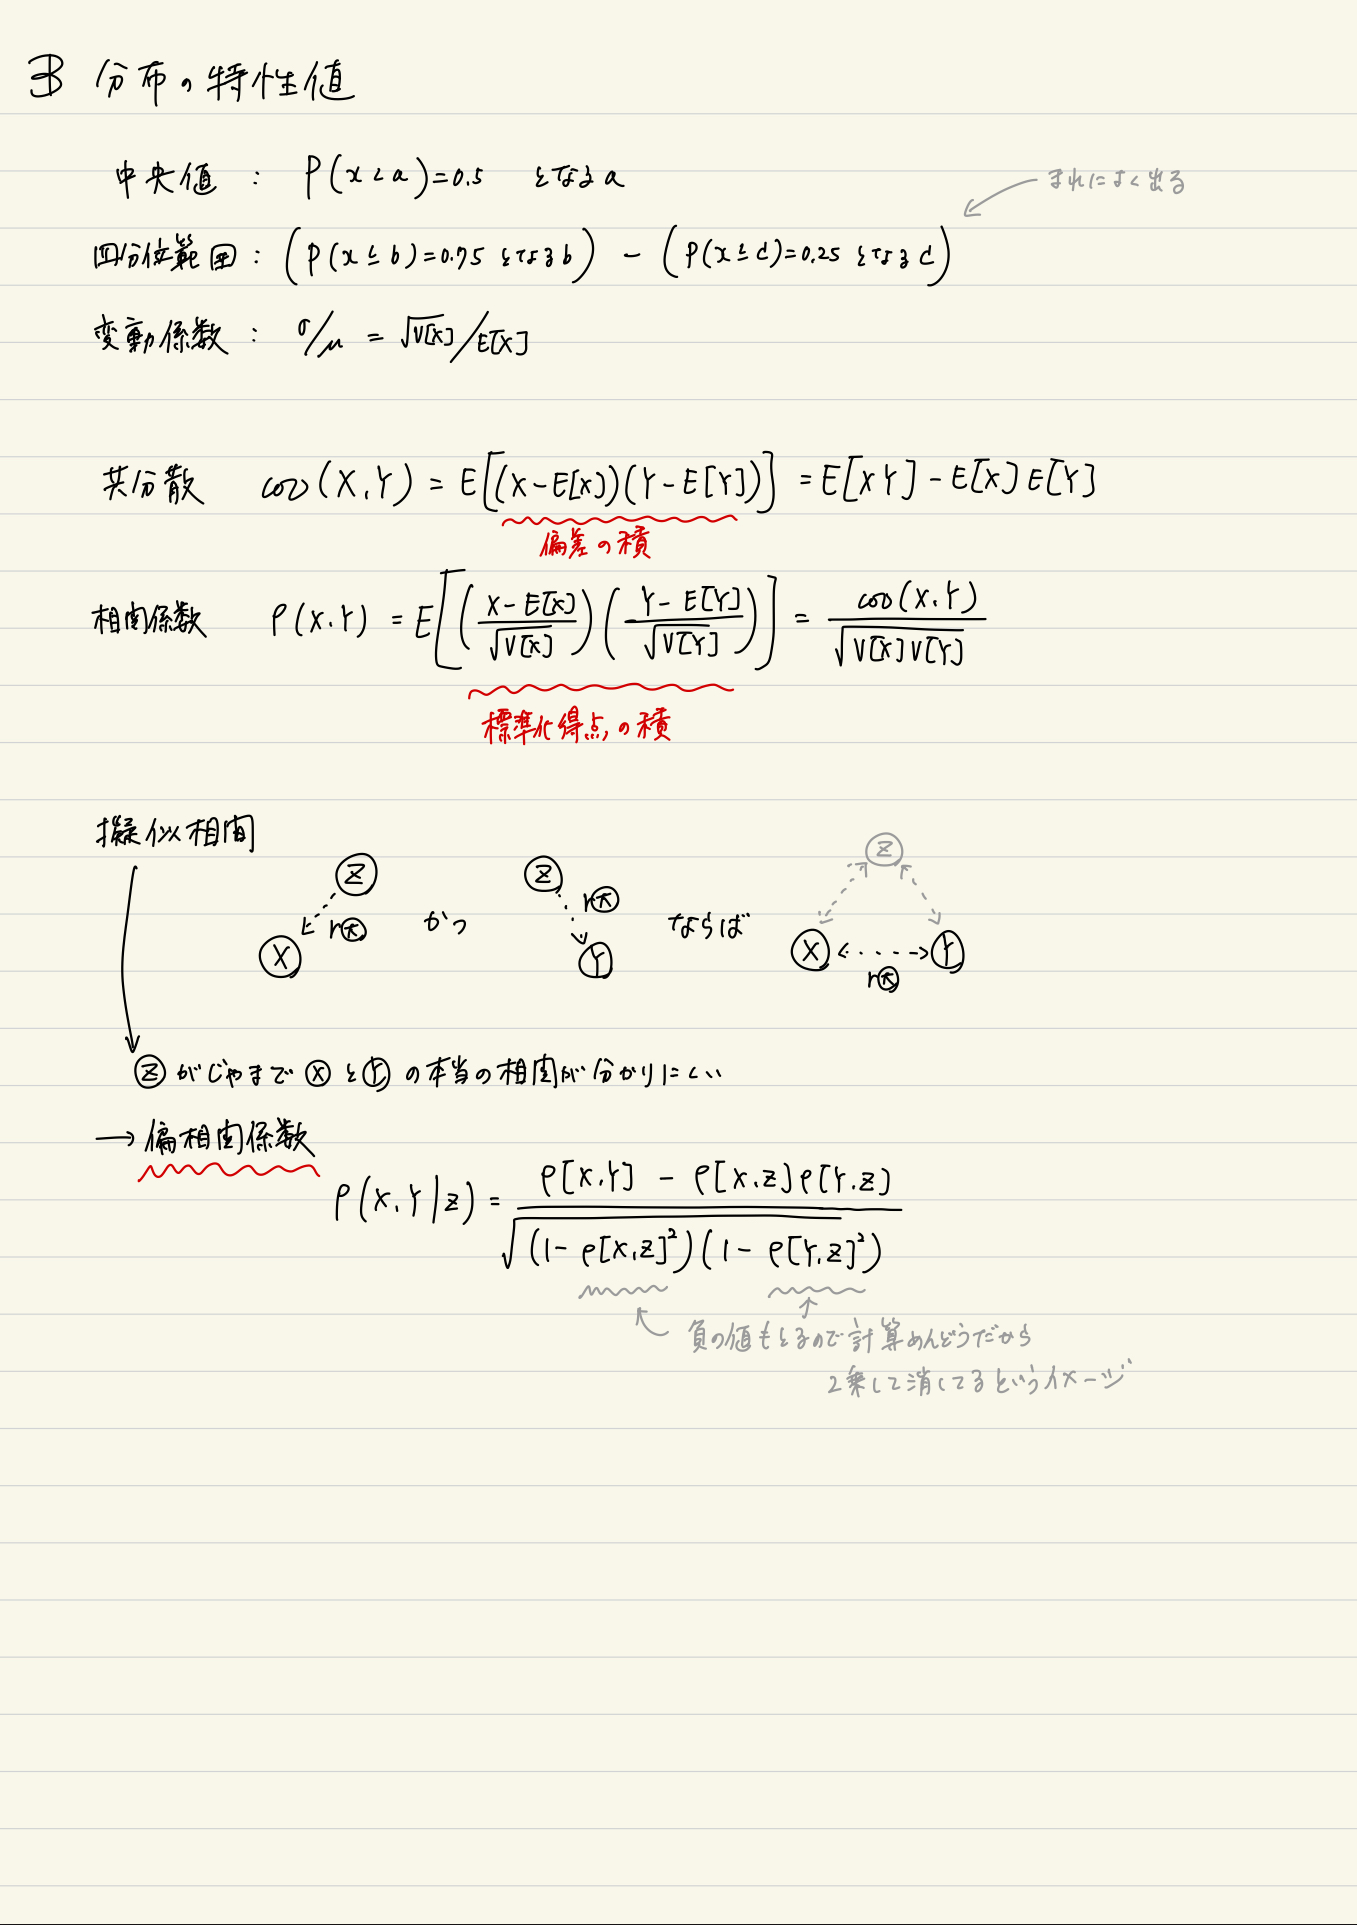 3 分布の特性値
中央値 : P(x<a)=0.5 となるa
まれによく出る
四分位範囲 : (P(x≦b)=0.75 となるb) - (P(x≦c)=0.25 となるc)
変動係数 : σ/μ = √V[X]/E[X]
共分散 cov(X,Y) = E[(X-E[X])(Y-E[Y])] = E[XY] - E[X]E[Y]
偏差の積
相関係数 ρ(X,Y) = E[((X-E[X])/√V[X])((Y-E[Y])/√V[Y])] = cov(X,Y)/√V[X]V[Y]
標準化得点の積
擬似相関
Z r大 X かつ Z r大 Y ならば Z X Y r大
Zがじゃまで XとYの本当の相関が分かりにくい
→ 偏相関係数
ρ(X,Y|Z) = (ρ[X,Y] - ρ[X,Z]ρ[Y,Z])/√(1-ρ[X,Z]²)(1-ρ[Y,Z]²)
負の値もとるので計算めんどうだから
2乗して消してるというイメージ